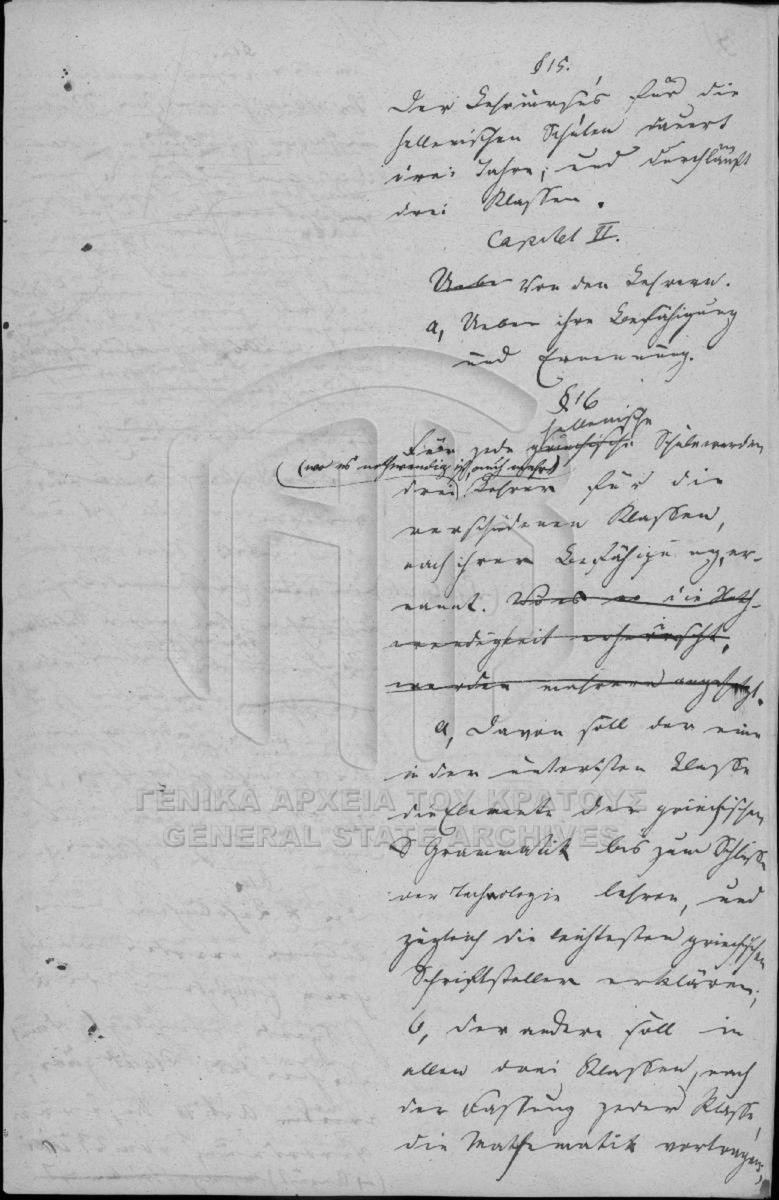 § 15.
Der Lehrcursus für die
hellenischen Schulen dauert
drei Jahre, und durchläuft
drei Klassen.
Capitel II.
Ueber Von den Lehrern.
a, Ueber ihre Befähigung
und Ernennung.
§ 16
hellenische
Für jede griechische Schule werden
(wo es nothwendig ist, auch mehr)
drei Lehrer für die
verschiedenen Klassen,
nach ihrer Befähigung, er-
nannt. Wo es die Noth-
wendigkeit erheischt,
werden mehrere angesetzt.
a, Davon soll der eine
in der untersten Klasse
die Elemente der griechischen
Grammatik bis zum Schlusse
der Technologie lehren, und
zugleich die leichtesten griechischen
Schriftsteller erklären;
b, der andere soll in
allen drei Klassen, nach
der Fassung jeder Klasse,
die Mathematik vortragen;
ΓΕΝΙΚΑ ΑΡΧΕΙΑ ΤΟΥ ΚΡΑΤΟΥΣ
GENERAL STATE ARCHIVES